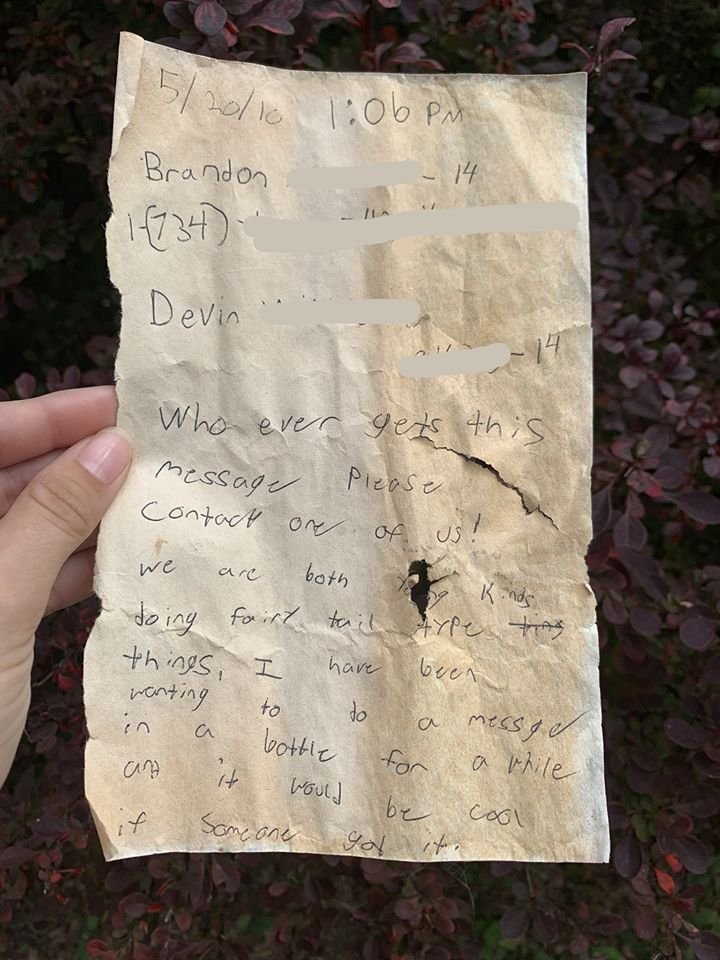 5/20/10 1:06 PM
Brandon - 14
1-(734)-
Devin
- 14
Who ever gets this
message please
contact one of us!
we are both Kinds
doing fairy tail type ting
things, I have been
wanting to do a messge
in a bottle for a while
and it would be cool
if someone got it.